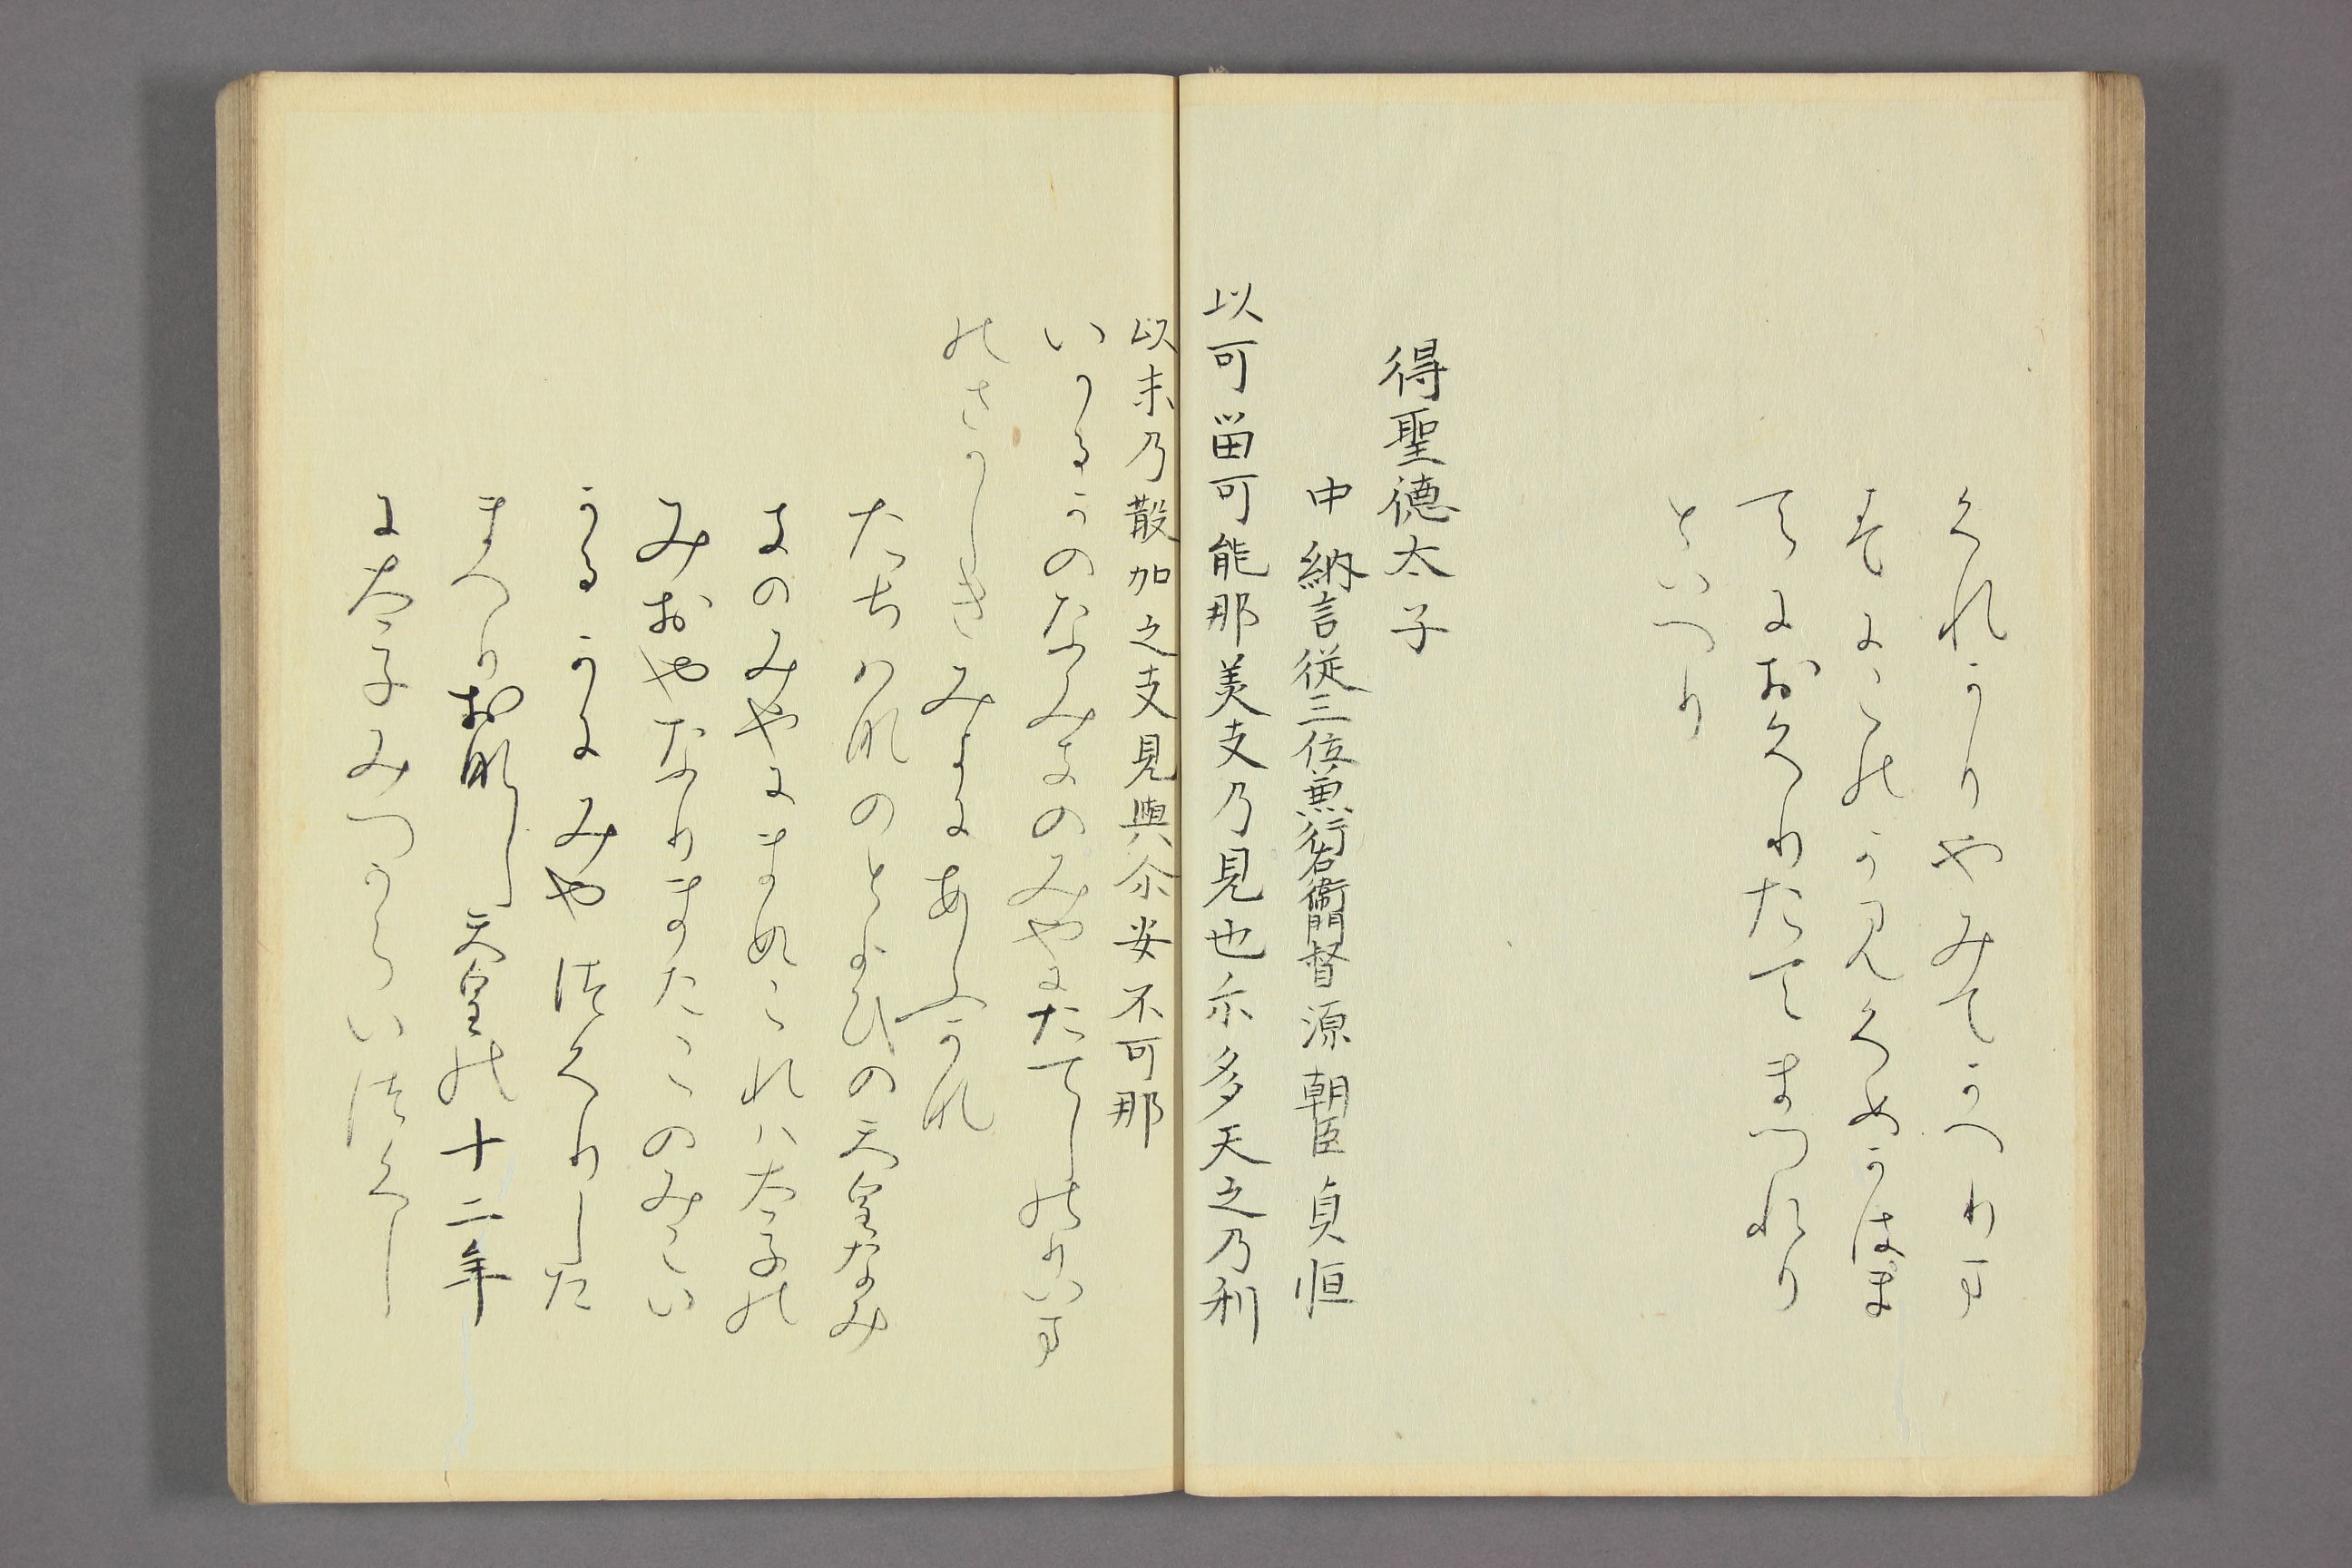 くれかりやみてかへりま
そよこれか見くめかはま
てよおくりたてまつれり
といへり
得聖徳太子
中納言従三位兼行右衛門督源朝臣貞恒
以可留可能那美支乃見也尓多天之乃利
以未乃散加之支見與尓安不可那
いかるかのなみきのみやにたてしのりいま
のさかしきみよにあふかな
たちはなのとよひの天皇なみ
きのみやにまぬこれは太子の
みおやなりまたこのみこい
かるかにみやつくりした
まへりおなし天皇の十二年
に太子みつからいつくし